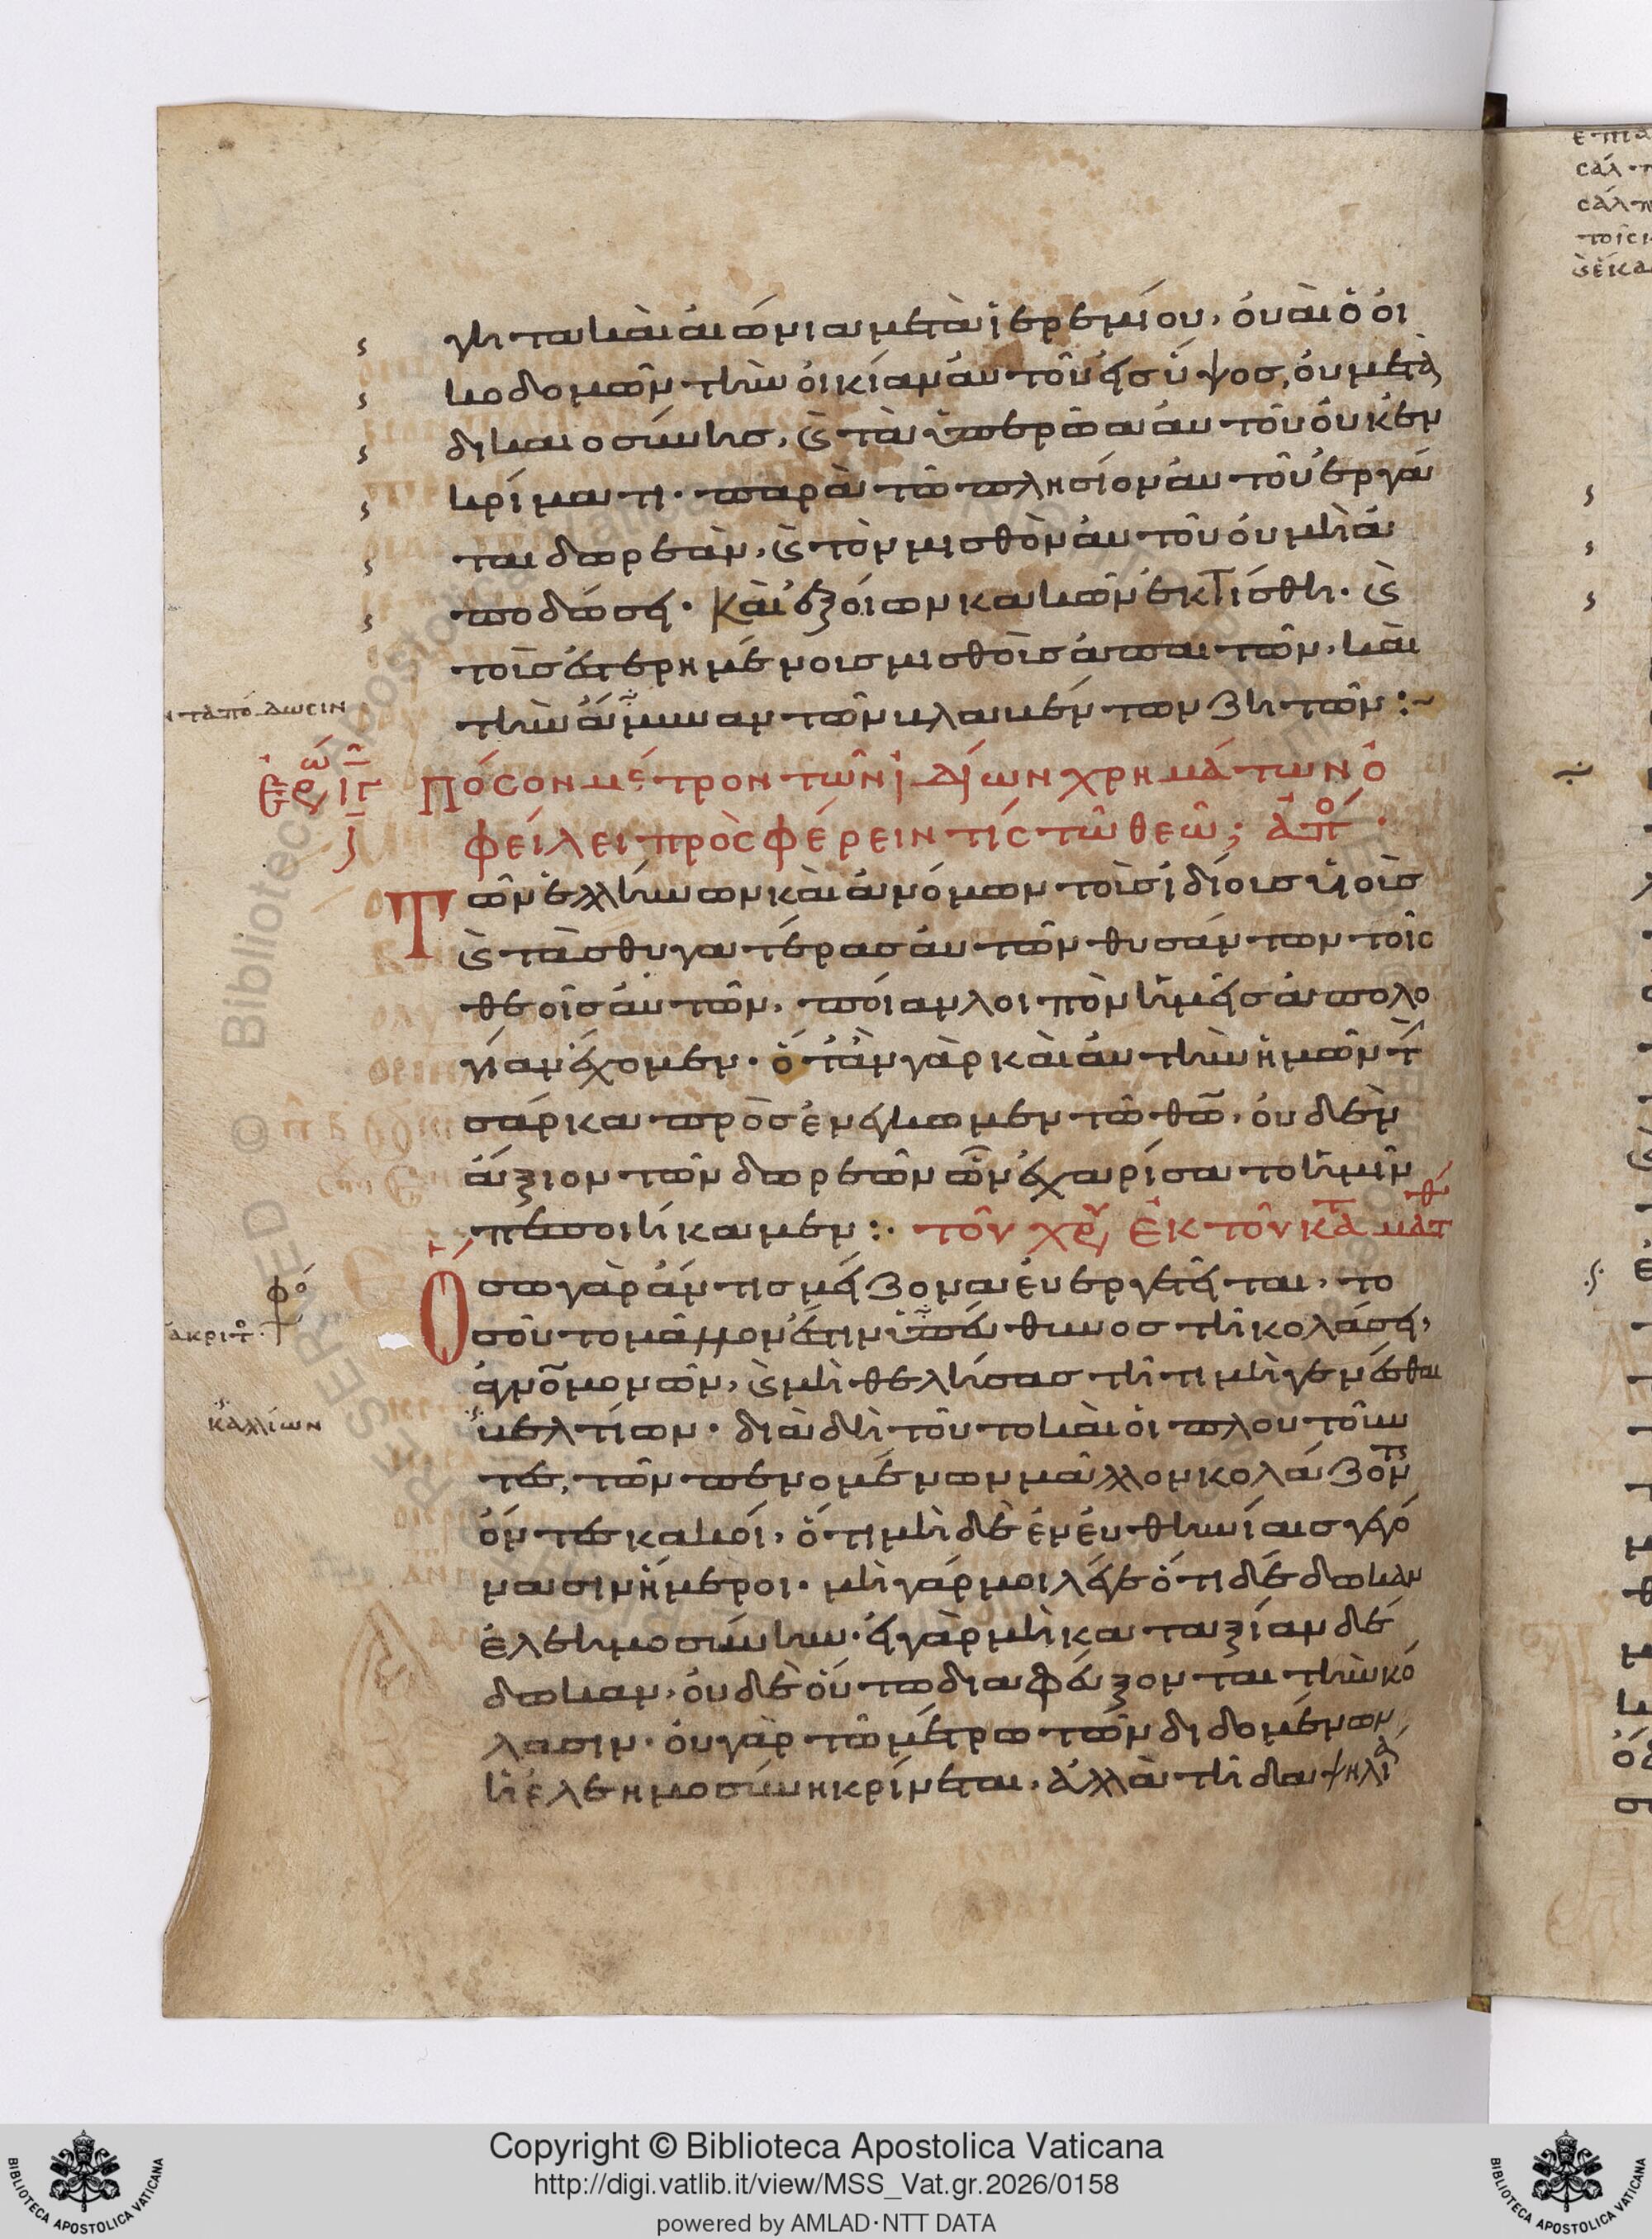 γῆται καὶ αἰώνιαν μετὰ ἱερεμίου, οὐαὶ ὁ οἰ
κοδομῶν τὴν οἰκίαν αὐτοῦ εἰς ὕψος, οὐ μετὰ
δικαιοσύνης, καὶ τὰ ὑπερῶα αὐτοῦ οὐκ ἐν
κρίματι· παρὰ τῶ πλησίον αὐτοῦ ἐργά
ται δωρεὰν, καὶ τὸν μισθὸν αὐτοῦ οὐ μὴ ἀ
ποδώσει· καὶ ἐξ οἵων κακῶν ἐκτίσθη· καὶ
τοῖς ἐστερημένοις μισθοῖς ἀπαιτῶν, καὶ
τὴν ἄμυναν τῶν κλαυσέντων ζητῶν :~
νταπόδωσιν
ἐρώ ιγ
Πόσον μέτρον τῶν ἰδίων χρημάτων ὀ
φείλει προσφέρειν τίς τῶ θεῶ; ἀπό·
Τῶν ἑλλήνων καὶ ἀνόμων τοῖς ἰδίοις υἱοῖς
καὶ τὰς θυγατέρας αὐτῶν θυσάντων τοῖς
θεοῖς αὐτῶν, ποίαν λοιπὸν ἡμεῖς ἀπολο
γίαν ἔχομεν· ὅταν γὰρ καὶ αὐτὴν ἡμῶν τ
σάρκα προσενέγκωμεν τῶ θῶ, οὐδὲν
ἄξιον τῶν δωρεῶν ὧν ἐχαρίσατο ἡμῖν
πεποιήκαμεν :· τοῦ χρ ἐκ τοῦ κατα ματθ
Ὅσω γὰρ ἄν τις μείζονα εὐεργετεῖται, το
σοῦτο μᾶλλον ἐστιν ὑπεύθυνος τῆ κολάσει,
ἀγνωμονῶν, καὶ μὴ θελήσας τῆ τιμῆ γενέσθαι
βελτίων· διὰ δὴ τοῦτο καὶ οἱ πλουτοῦν
τες, τῶν πενομένων μᾶλλον κολάζονται
ὄντες κακοί, ὅτι μὴ δὲ ἐν εὐθηνίαις γεγό
νασιν ἥμεροι· μὴ γάρ μοι λέγε ὅτι δέδωκαν
ἐλεημοσύνην· εἰ γὰρ μὴ κατ' ἀξίαν δέ
δωκαν, οὐδὲ οὕτω διαφεύξονται τὴν κό
λασιν· οὐ γὰρ τῶ μέτρω τῶν διδομένων,
ἡ ἐλεημοσύνη κρίνεται, ἀλλὰ τῆ δαψηλεί
καλλίων
Copyright © Biblioteca Apostolica Vaticana
http://digi.vatlib.it/view/MSS_Vat.gr.2026/0158
powered by AMLAD·NTT DATA